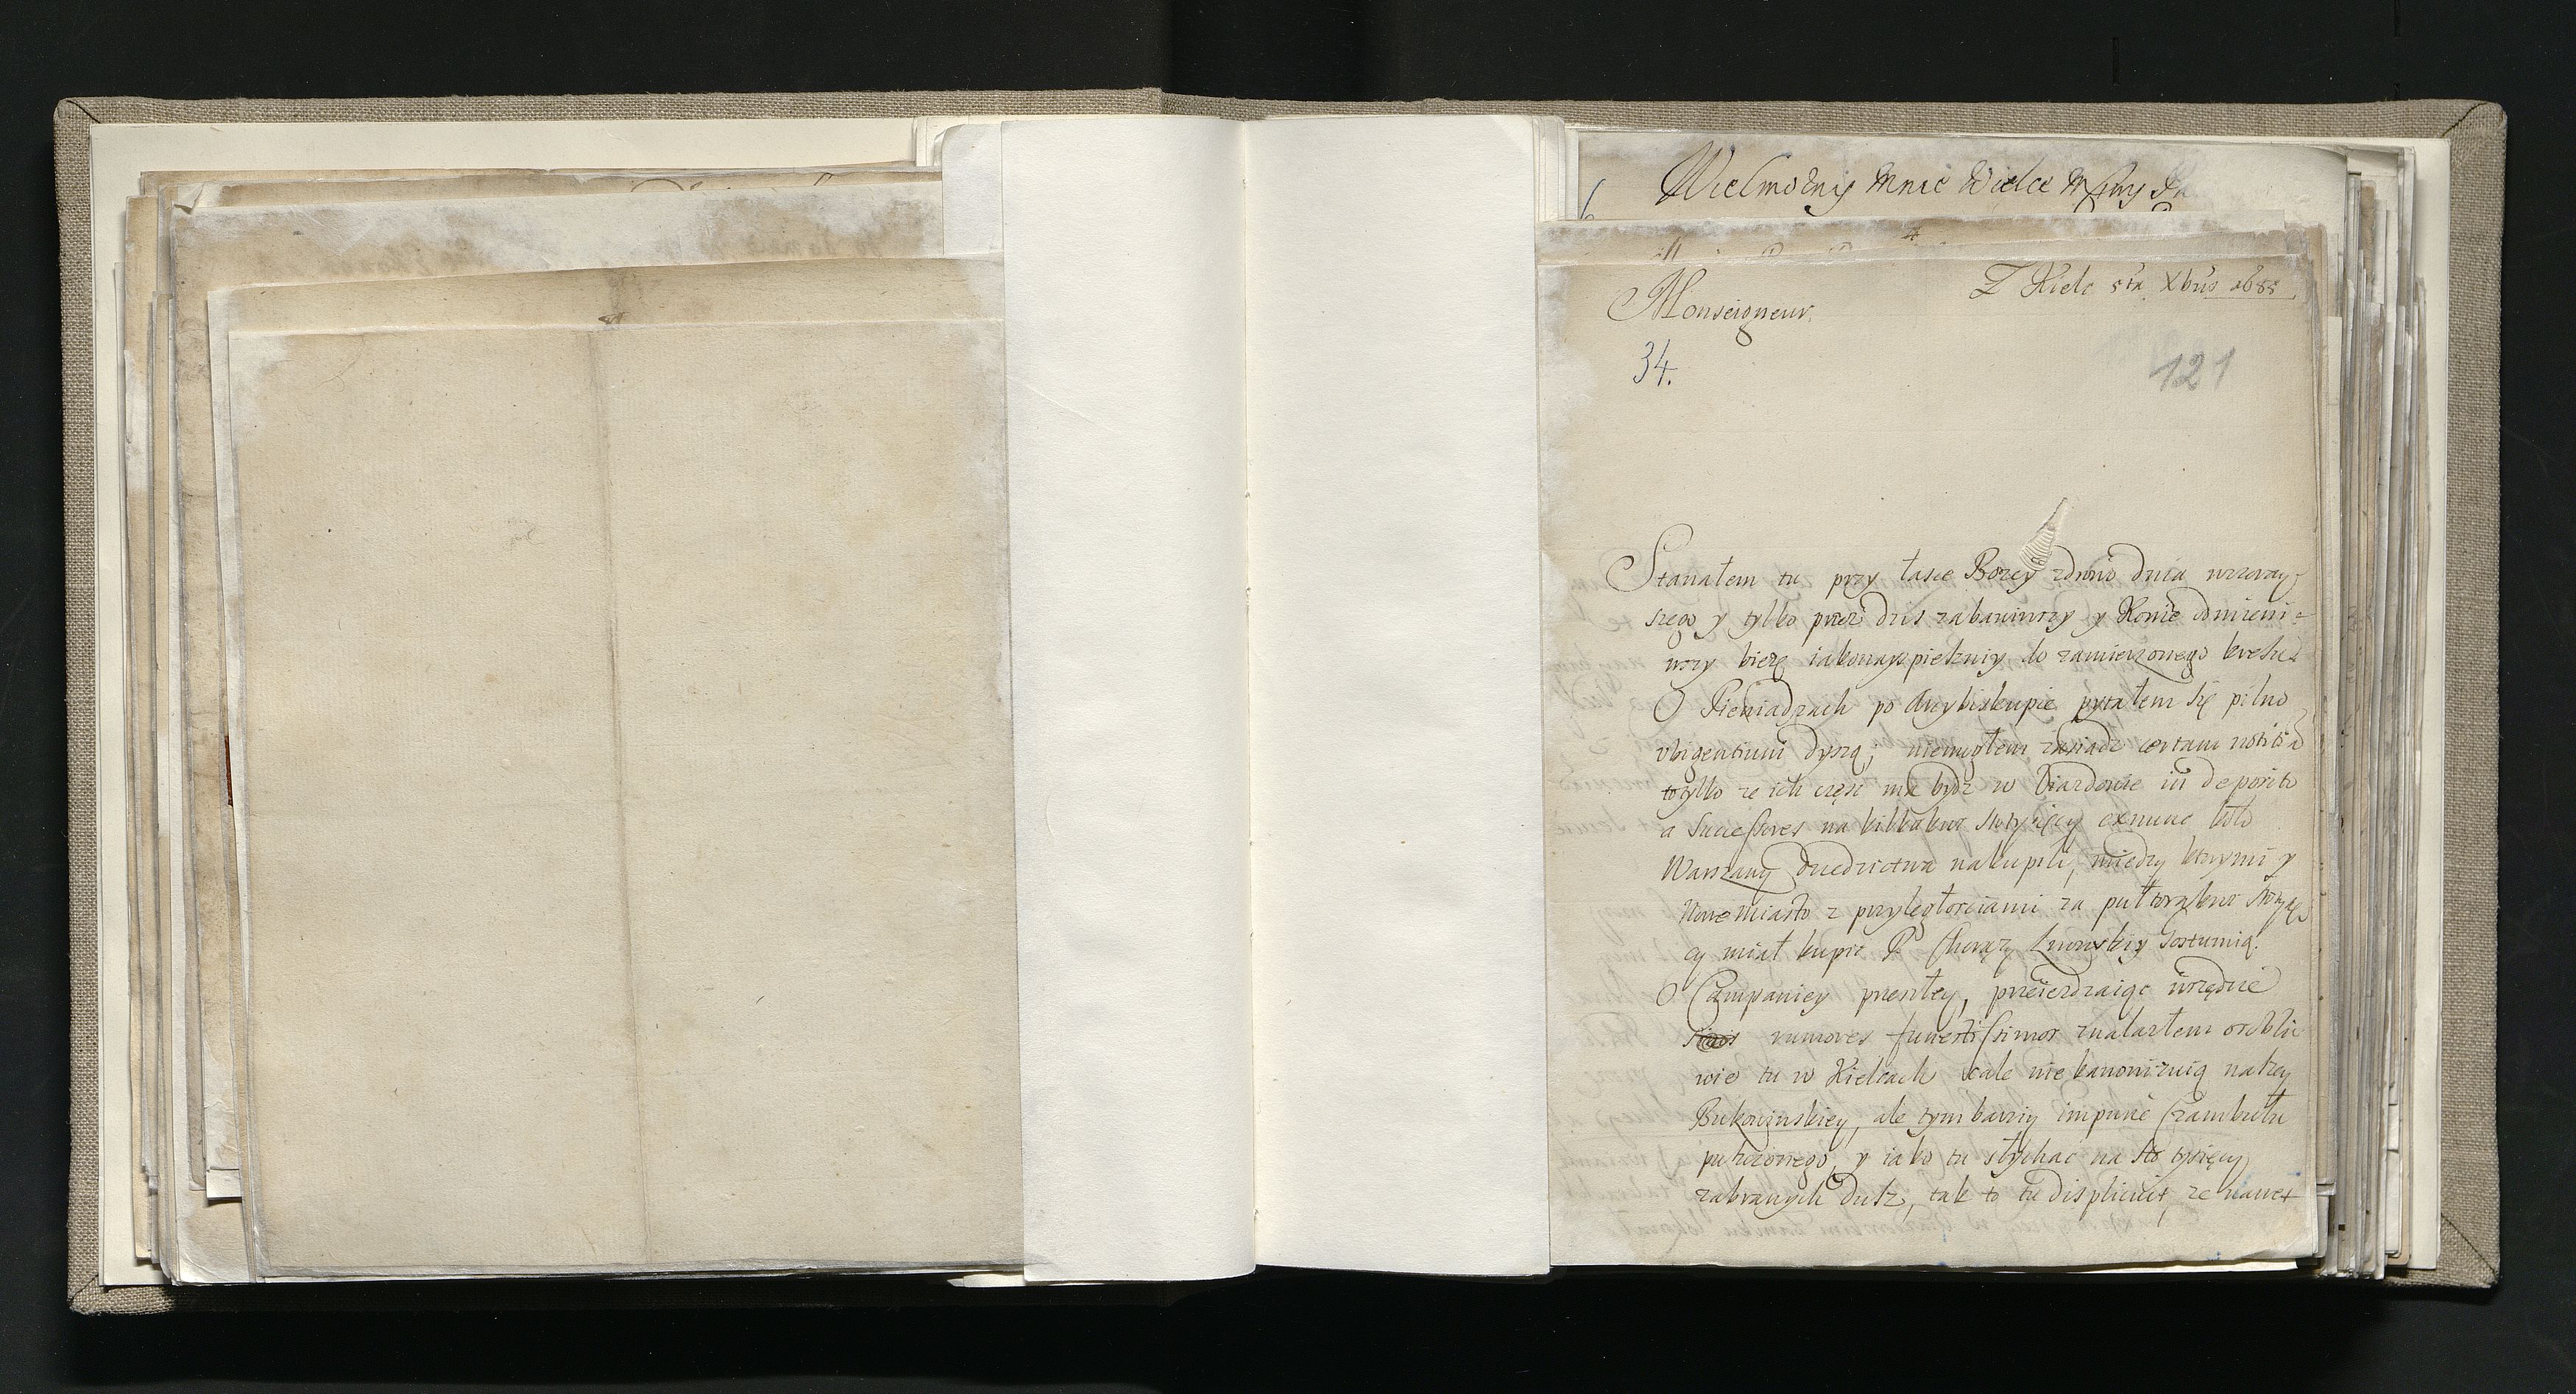 Wielmożny Mnie Wielce Mściwy
Z Kielc 5ta Xbris 1685
Monseigneur.
34.
121
Stanałem tu przy łasce Bozey zdrowo dnia wczoray-
szego y tylko przez dzis zabawiwszy y Konie odmieni-
wszy bieżę iakonayspieszniy do zamierzonego kresu
O Pieniadzach po Arcybiskupie pytałem się pilno
ubigentium dyszą; niemogłem zasiadz certam notitia
totylko ze ich częsc ma bydz w deposito
a Successores na kilkakroc stotysięcy exnunc koło
Warszawy Dziedzictwa nakupili, między ktorymi y
Nowemiasto z przyległosciami za pułtorakroc stotysię
cy miał kupic P. Chorąży Lwowskiy Gostumią.
O Campaniey przeszłey, przeierdzaiąc wszędzie
rumores funestissimos znalazłem osobli
wie tu w Kielcach wcale nie kanonizuią naszey
Bukowinskiey, ale tymbarziy impune Czambułu
puszczonego, y iako tu słychac na sto tysięcy
zabranych dusz, tak to tu displicuit, ze nawet